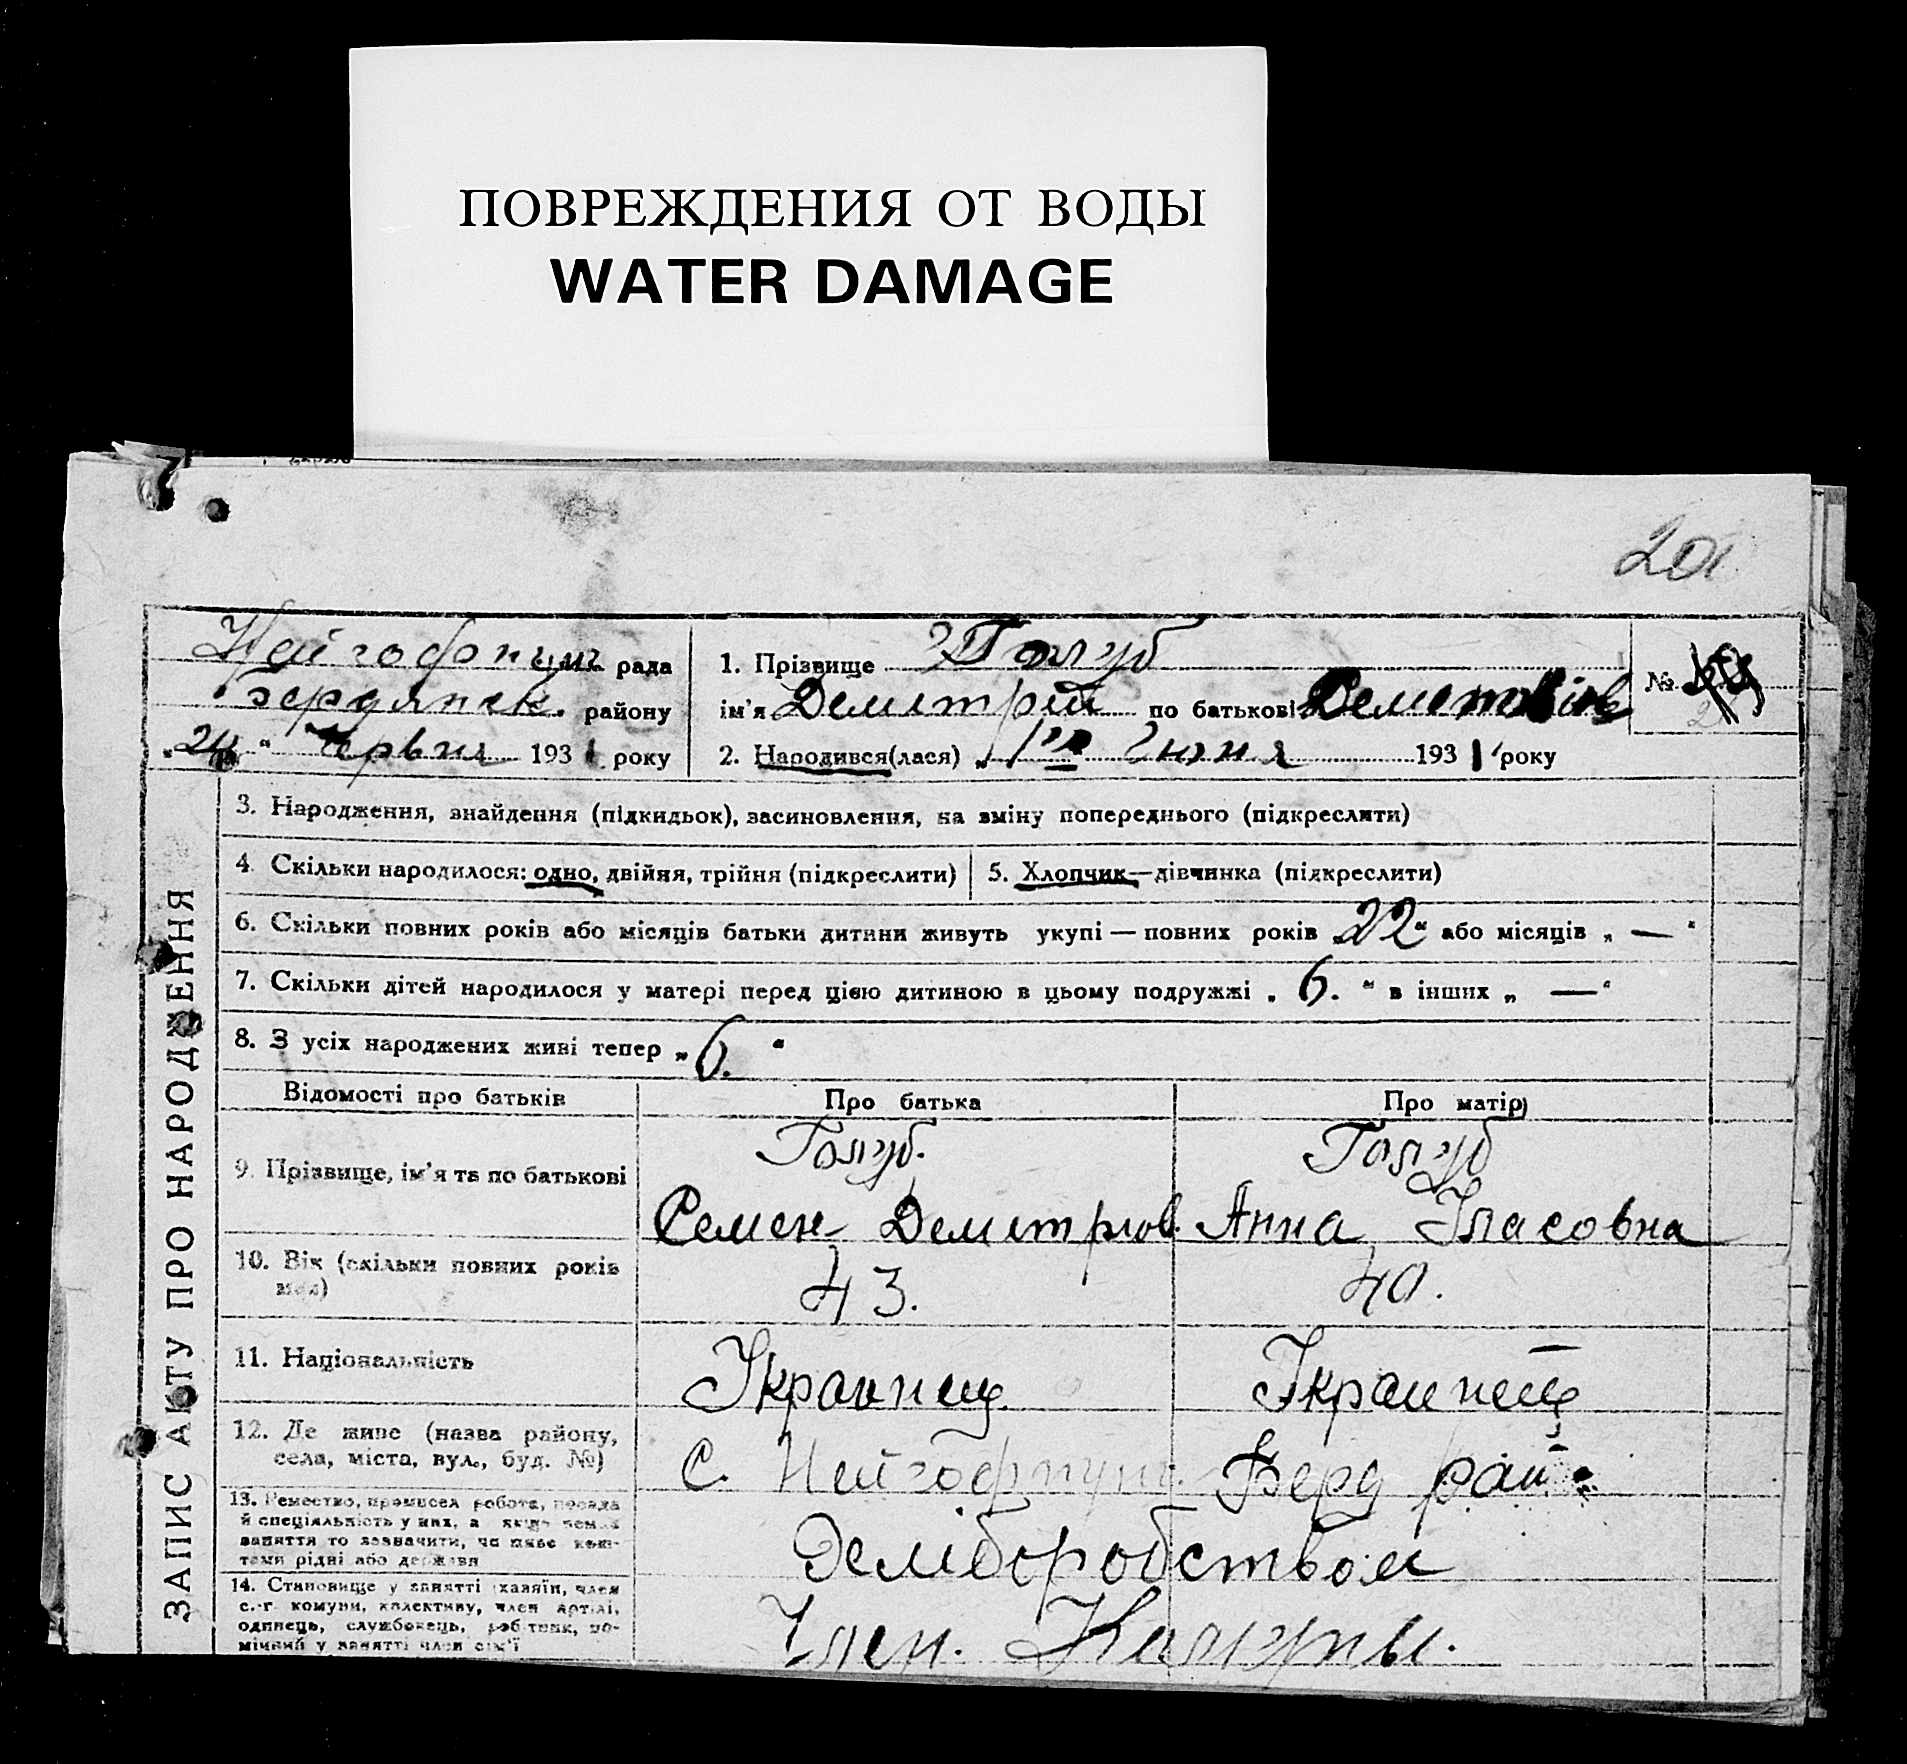 ПОВРЕЖДЕНИЯ ОТ ВОДЫ
WATER DAMAGE
201
Нейгофпунг рада
Бердянск. району
„24“ Червня 1931 року
1. Прізвище Голуб
ім'я Демитрій по батькові
2. Народився(лася) „1го Июня 1931 року
№
ЗАПИС АКТУ ПРО НАРОДЖЕННЯ
3. Народження, знайдення (підкидьок), засиновлення, на зміну попереднього (підкреслити)
4. Скільки народилося: одно, двійня, трійня (підкреслити)
5. Хлопчик—дівчинка (підкреслити)
6. Скільки повних років або місяців батьки дитини живуть укупі — повних років „22“ або місяців „ — “
7. Скільки дітей народилося у матері перед цією дитиною в цьому подружжі „ 6. “ в інших „ — “
8. З усіх народжених живі тепер „ 6. “
Відомості про батьків
Про батька
Про матір
9. Прізвище, ім'я та по батькові
Голуб.
Семен Демитров.
Голуб
Анна Власовна
10. Вік (скільки повних років має)
43.
40.
11. Національність
Украинец
Украинец
12. Де живе (назва району,
села, міста, вул., буд. №)
С. Нейгофпунг. Берд рай
13. Ремество, промисел робота, посада
й спеціяльність у них, а якщо нема
заняття то зазначити, чи живе кош-
тами рідні або держави
Земіборобством
14. Становище у занятті хазяїн, член
с.-г. комуни, колективу, член артілі,
одинець, службовець, робітник, по-
мічний у занятті член сім'ї
Член. Камуны.